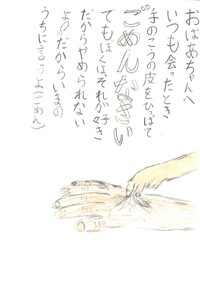 おばあちゃんへ
いつも会ったとき
手のこうの皮をひっぱて
ごめんなさい
でもぼくは、それが好き
だからやめられない
よ。だからいまの
うちに言うよ(ごめん)